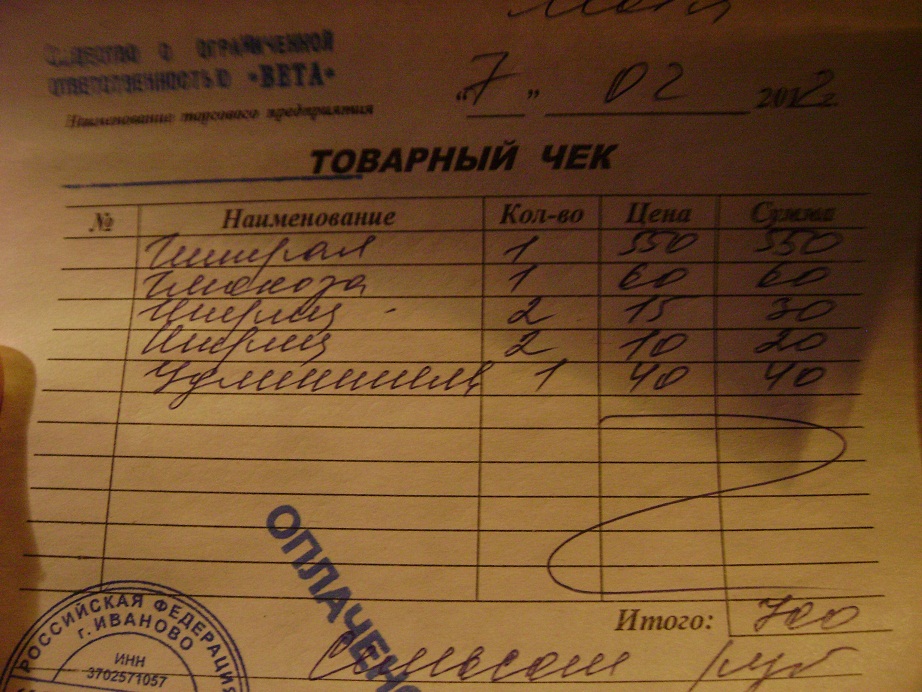 ОБЩЕСТВО С ОГРАНИЧЕННОЙ
ОТВЕТСТВЕННОСТЬЮ «ВЕТА»
Наименование торгового предприятия
"7" 02 2012 г.
ТОВАРНЫЙ ЧЕК
№ Наименование Кол-во Цена Сумма
1 550 550
Глюкоза 1 60 60
Шприц - 2 15 30
Шприц 2 10 20
Удлинитель 1 40 40
ОПЛАЧЕНО
Итого: 700
Семьсот руб
РОССИЙСКАЯ ФЕДЕРАЦИЯ
г. ИВАНОВО
ИНН
3702571057